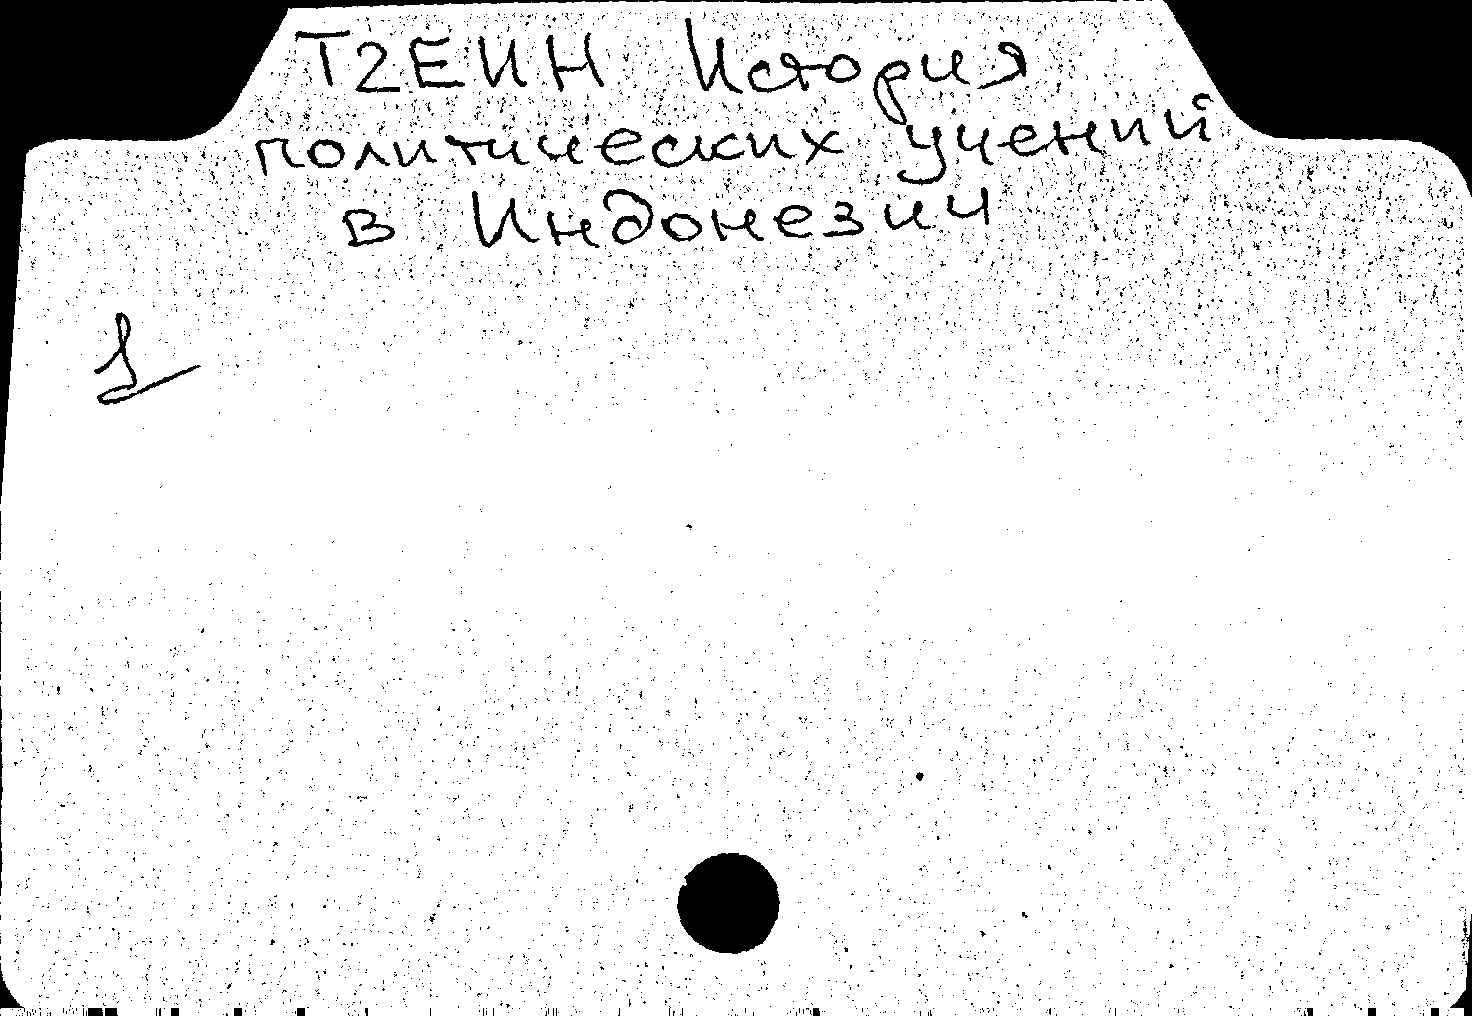 Т2ЕИН История
политических учений
в Индонезии
1